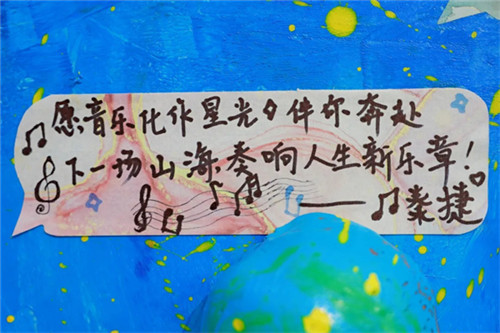 愿音乐化作星光，伴你奔赴
下一场山海，奏响人生新乐章！
——秦捷